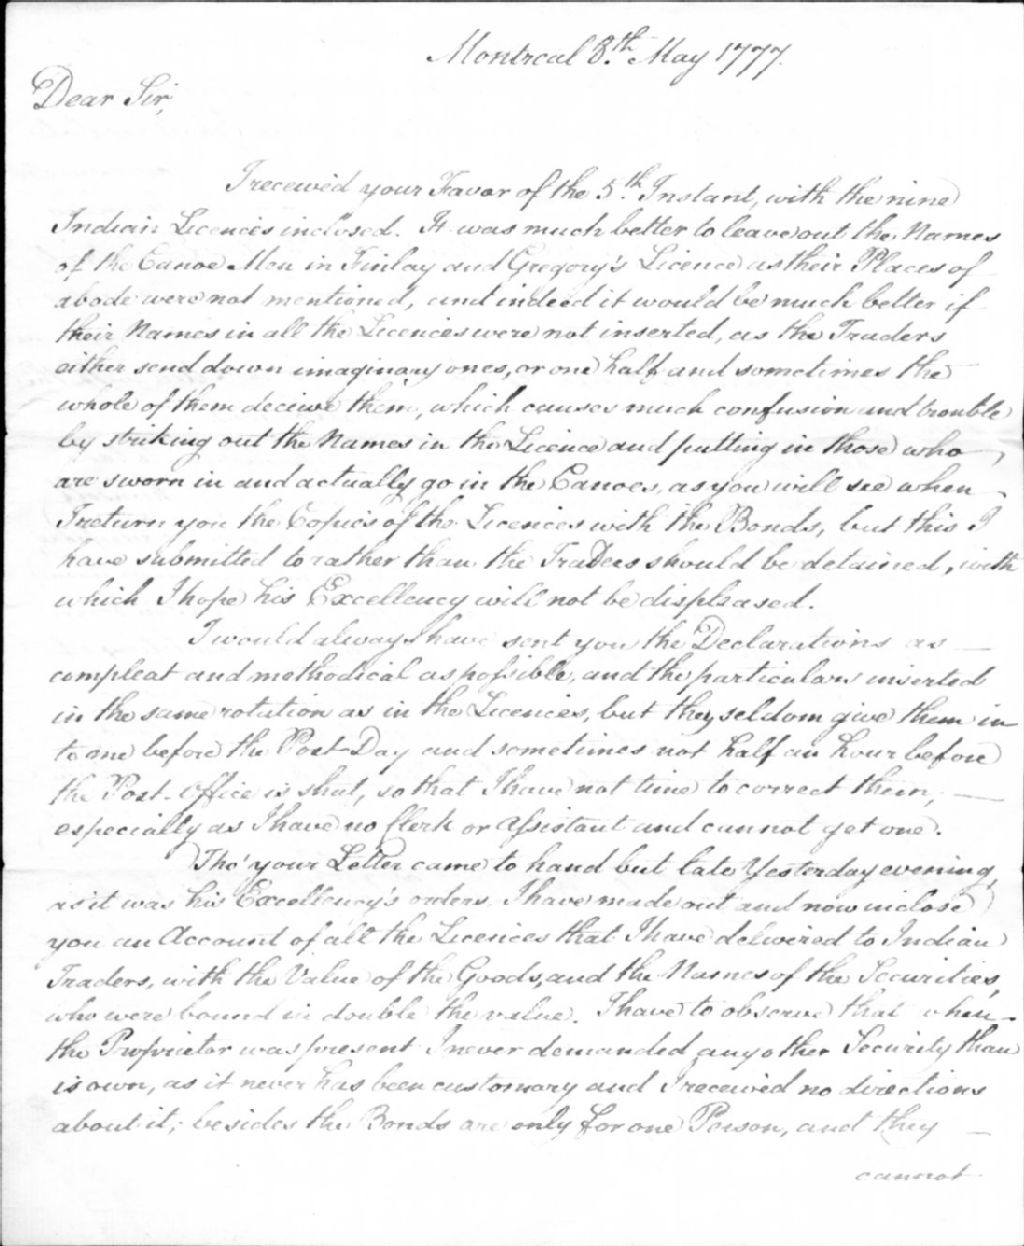 Montreal 8.th May 1777.
Dear Sir,
I received your Favor of the 5.th Instant, with the nine
Indian Licences inclosed. It was much better to leave out the Names
of the Canoe Men in Finlay and Gregory's Licence as their Places of
abode were not mentioned, and indeed it would be much better if
their Names in all the Licences were not inserted, as the Traders
either send down imaginary ones, or one half and sometimes the
whole of them deceive them, which causes much confusion and trouble
by striking out the Names in the Licence and putting in those who
are sworn in and actually go in the Canoes, as you will see when
I return you the Copies of the Licences with the Bonds, but this I
have submitted to rather than the Traders should be detained, with
which I hope his Excellency will not be displeased.
I would always have sent you the Declarations as —
compleat and methodical as possible, and the particulars inserted
in the same rotation as in the Licences, but they seldom give them in
to me before the Post-Day and sometimes not half an hour before
the Post-Office is shut, so that I have not time to correct them, —
especially as I have no Clerk or Assistant and cannot get one.
Tho' your Letter came to hand but late Yesterday evening,
as it was his Excellency's orders, I have made out and now inclose
you an Account of all the Licences that I have delivered to Indian
Traders, with the Value of the Goods, and the Names of the Securities,
who were bound in double the value. I have to observe that when —
the Proprietor was present I never demanded any other Security than
is own, as it never has been customary and I received no directions
about it; besides the Bonds are only for one Person, and they —
cannot